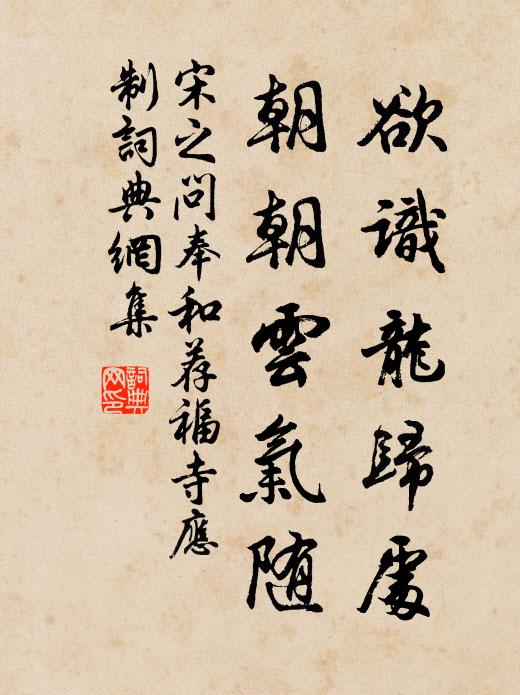 欲識龍歸處
朝朝雲氣随
宋之问奉和荐福寺應
制詞典網集
詞典
网印